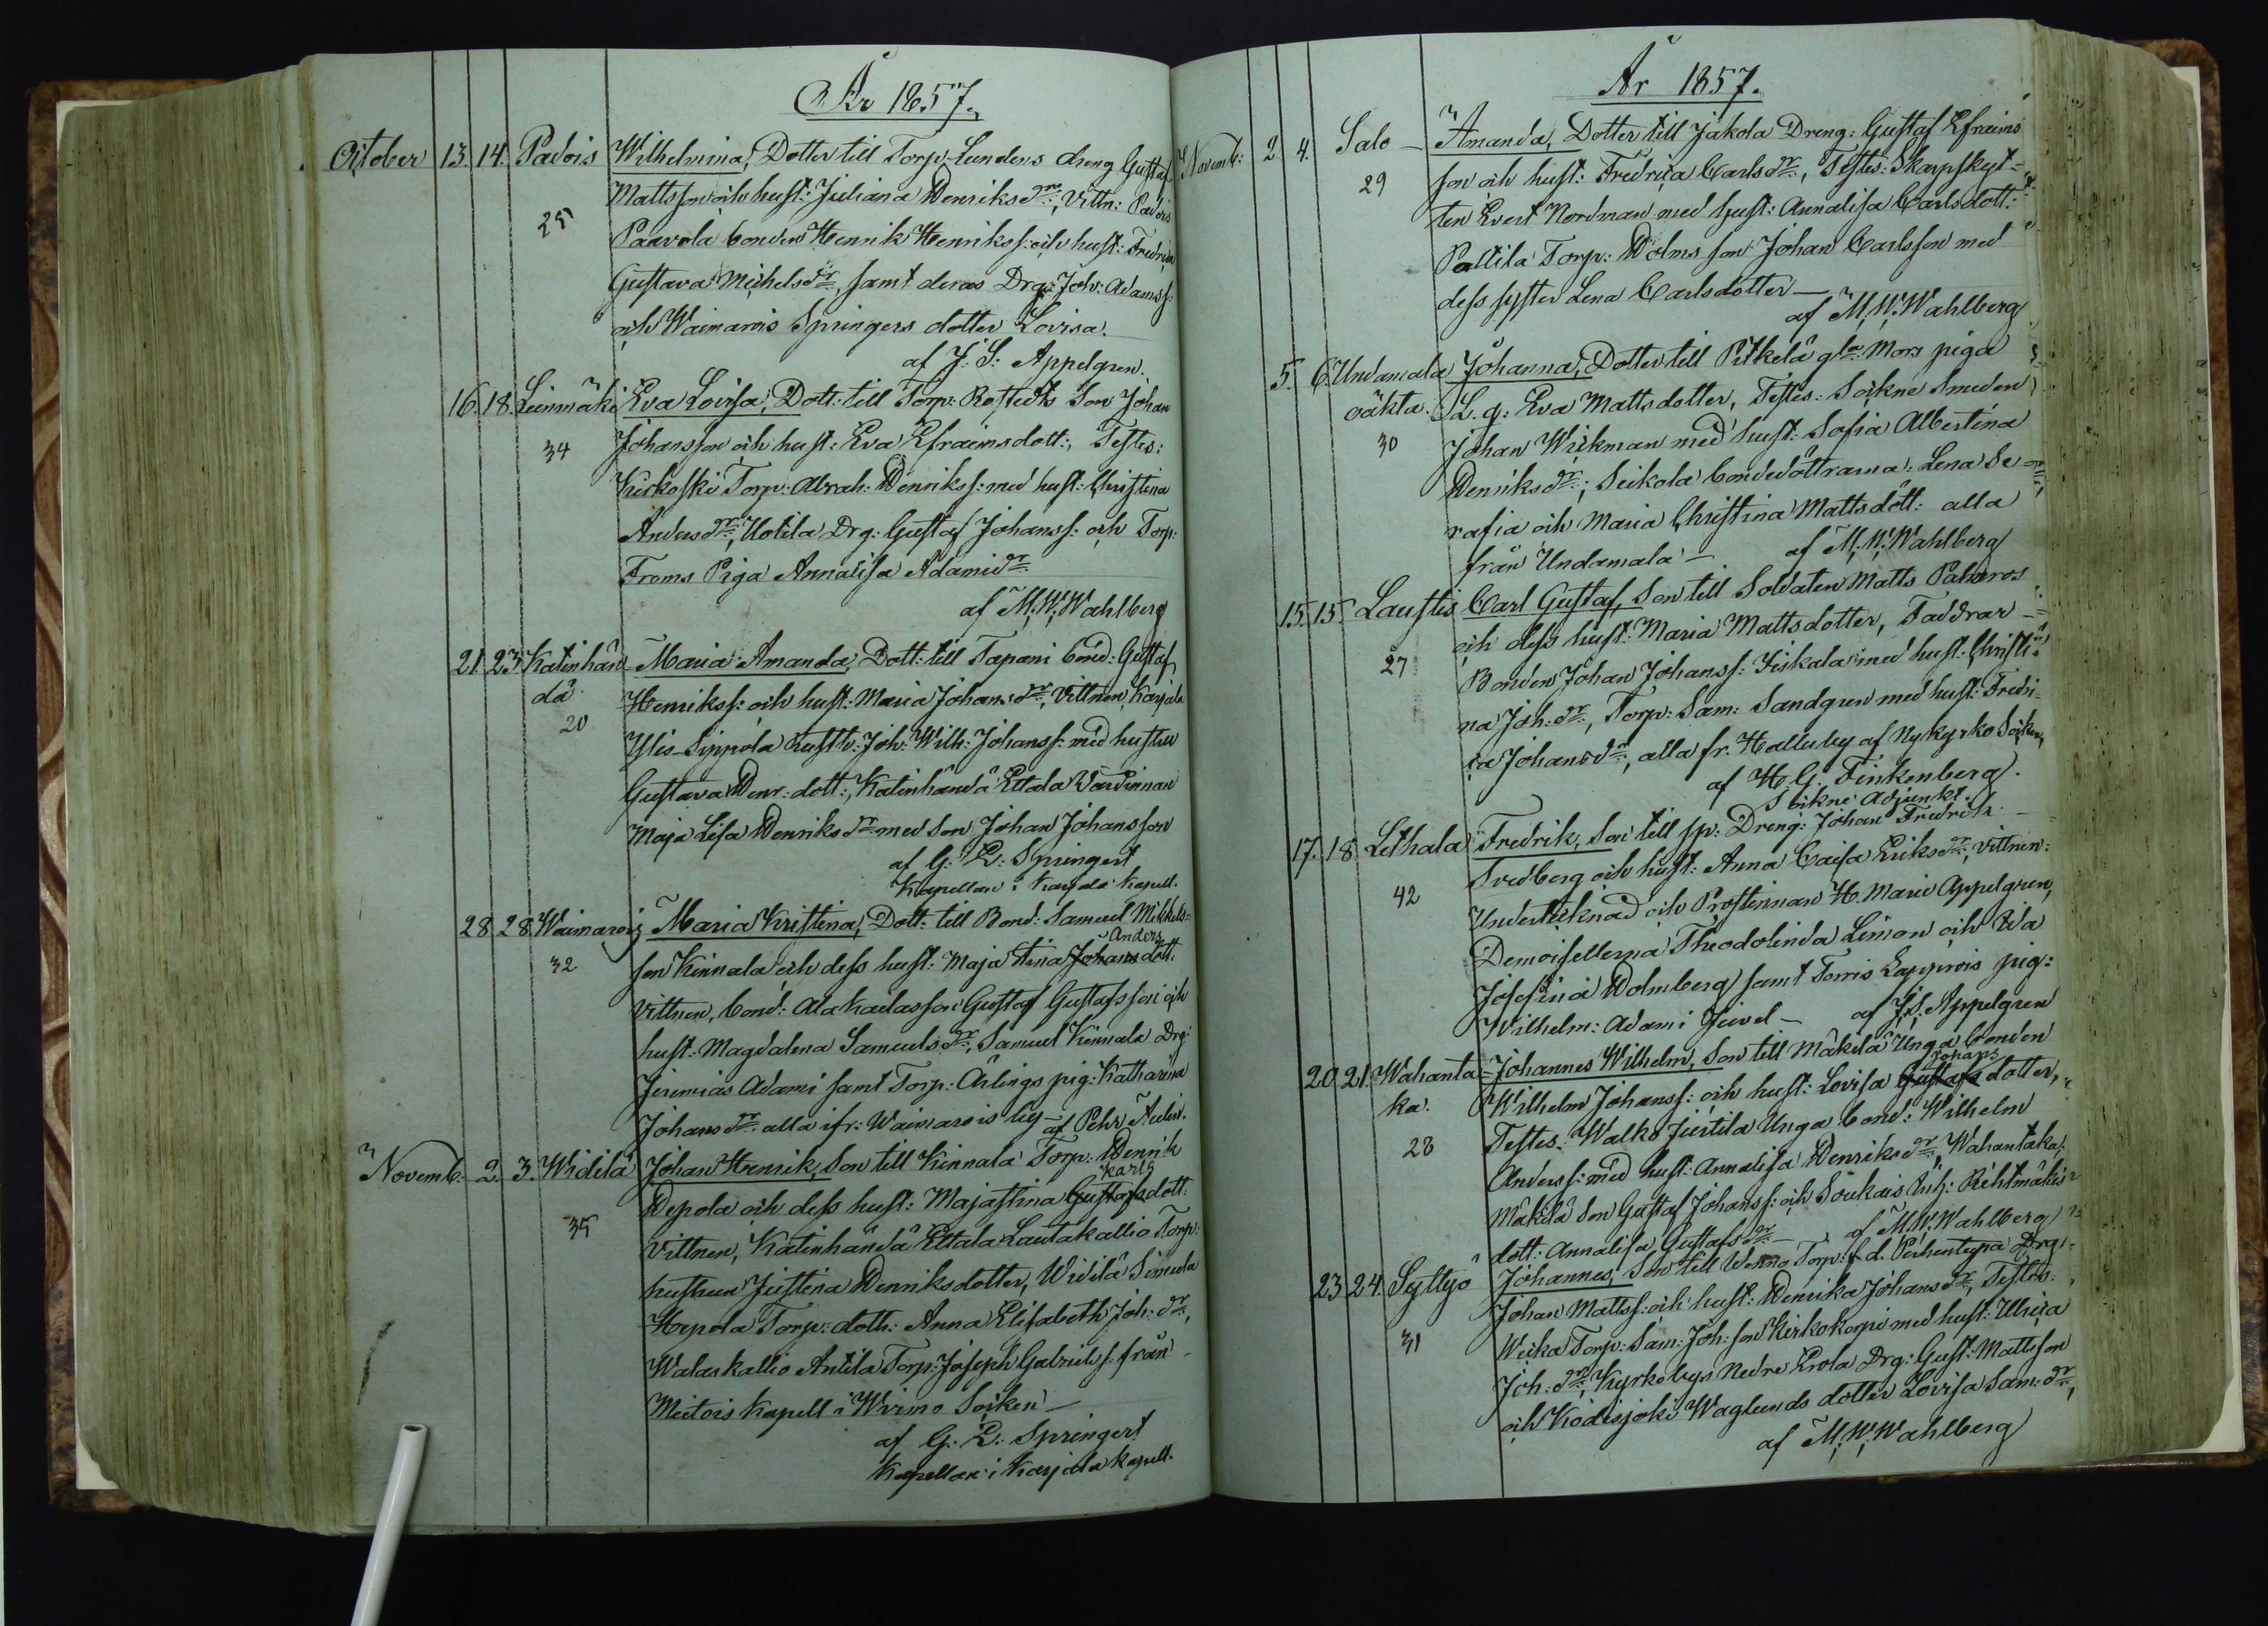 År 1857.
October 13. 14. Padois Wilhelmina, Dotter till Torp. Lundens dreng Gustaf
Mattsson och hust: Juliana Henriksdr, Vittn: Padois
25
Paavola bonden Henrik Henrikss: och hust: Fredrica
Gustava Michelsdr, samt deras Drg: Joh: Adamss:
och Waimarois Springers dotter Lovisa.
af J: S: Appelgren.
16. 18. Leinmäki Eva Lovisa, Dott: till Torp: Rostedts Son Johan
34 Johansson och hust: Eva Efraimsdott:, Testes:
Kirkoski Torp: Abrah: Henrikss: med hust: Christina
Andersdr, Uotila Drg: Gustaf Johanss: och Torp:
Froms Piga Annalisa Adamidr
af M. W. Wahlberg
21. 23. Katinhän- Maria Amanda, Dott: till Tapani bond: Gustaf
dä Henrikss: och hust: Maria Johansdr, Vittnen, Karjala
20
Ylis-Sippola rusth: Joh: Wilh: Johanss: med hustru
Gustava Henr: dott:, Katinhändä Ettala Värdinnan
Maja Lisa Henriksdr med son Johan Johansson
af G: E: Springert
Kapellan i Karjala Kapell.
28. 28. Waimarois Maria Kristina, Dott: till Bond: Samuel Mikkels-
Anders
32 son Kinnala och dess hust: Maja Stina Johans dott:
Vittnen, bond: Alakailasson Gustaf Gustafsson och
hust: Magdalena Samuelsdr, Samuel Kinnala Drg:
Jeremias Adami samt Torp: Ärlings pig: Katharina
Johansdr alla ifr: Waimarois by – af Pehr Aulin.
Novemb. 2. 3. Widilä Johan Henrik, Son till Kinnala Torp: Henrik
Karls
Hepola och dess hust: Majastina Gustafsdott:
35
Vittnen, Katinhändä Ettala Lautakallio Torp:
hustrun Justina Henriksdotter, Widilä Simula
Hepola Torp: dott: Anna Elisabeth Joh: dr,
Walaskallio Antila Torp: Joseph Gabriels s. från
Mietois Kapell i Wirmo Socken –
af G: E: Springert
Kapellan i Karjala Kapell.
År 1857.
Novemb: 2. 4. Salo – Amanda, Dotter till Jakola Dreng: Gustaf Efraims
29 son och hust: Fredrica Carlsdr, Testes: Skarpskyt-
ten Evert Nordman med hust: Annalisa Carlsdott:
Pallila Torp: Holms son Johan Carlsson med
dess syster Lena Carlsdotter –
af M. W. Wahlberg
5. 6. Undamala Johanna, Dotter till Pitkelä gla Mors piga
oäkta. L. g: Eva Mattsdotter, Testes: Sockne Smeden
30 Johan Wickman med hust: Sofia Albertina
Henriksdr, Seikola bondedöttrarna: Lena Se-
rafia och Maria Christina Mattsdött: alla
från Undamala – af M. W. Wahlberg
15. 15. Laustis Carl Gustaf, Son till Soldaten Matts
och dess hust: Maria Mattsdotter, Faddrar
27 Bonden Johan Johanss: Yiskala med hust: Christi-
na Joh: dr, Torp: Sam: Sandgren med hust: Fredri-
ca Johansdr, alla fr: Halluby af Nykyrko Socken,
af H. G. Finkenberg.
Sockne Adjunkt.
17. 18. Lethala Fredrik, Son till sp: Dreng: Johan Fredrik
Fredberg och hust: Anna Caisa Eriksdr, Vittnen:
42
Undertecknad och Prostinnan H. Maria Appelgren,
Demoisellerna Theodolinda Limon och Ida
Josefina Holmberg samt Torris Lapprois pig:
Wilhelm: Adami Juvel – af J: S: Appelgren
20. 21. Wahanta- Johannes Wilhelm, Son till Mäkilä Unga bonden
Johans
ka. Wilhelm Johanss: och hust: Lovisa Gustafs dotter,
28 Testes: Walko Juntila Unga bond: Wilhelm
Anderss: med hust: Annalisa Henriksdr, Wahantaka,
Mäkilä Son Gustaf Johanss: och Soukais Inh: Rihtmäkis
dott: Annalisa Gustafsdr – af M. W. Wahlberg
23. 24. Syttyö Johannes, Son till Wenno Torp: f. d. Perhentupa Drg:
Johan Mattss: och hust: Henrika Johansdr, Testes:
31 Wiika Torp: Sam: Joh: son Kirkokorpi med hust: Ulrica
Joh: dr, Kyrkobys Nedre Erola Drg: Gust: Mattsson
och Kodisjoki Waglunds dotter Lovisa Sam: dr,
af M. W. Wahlberg